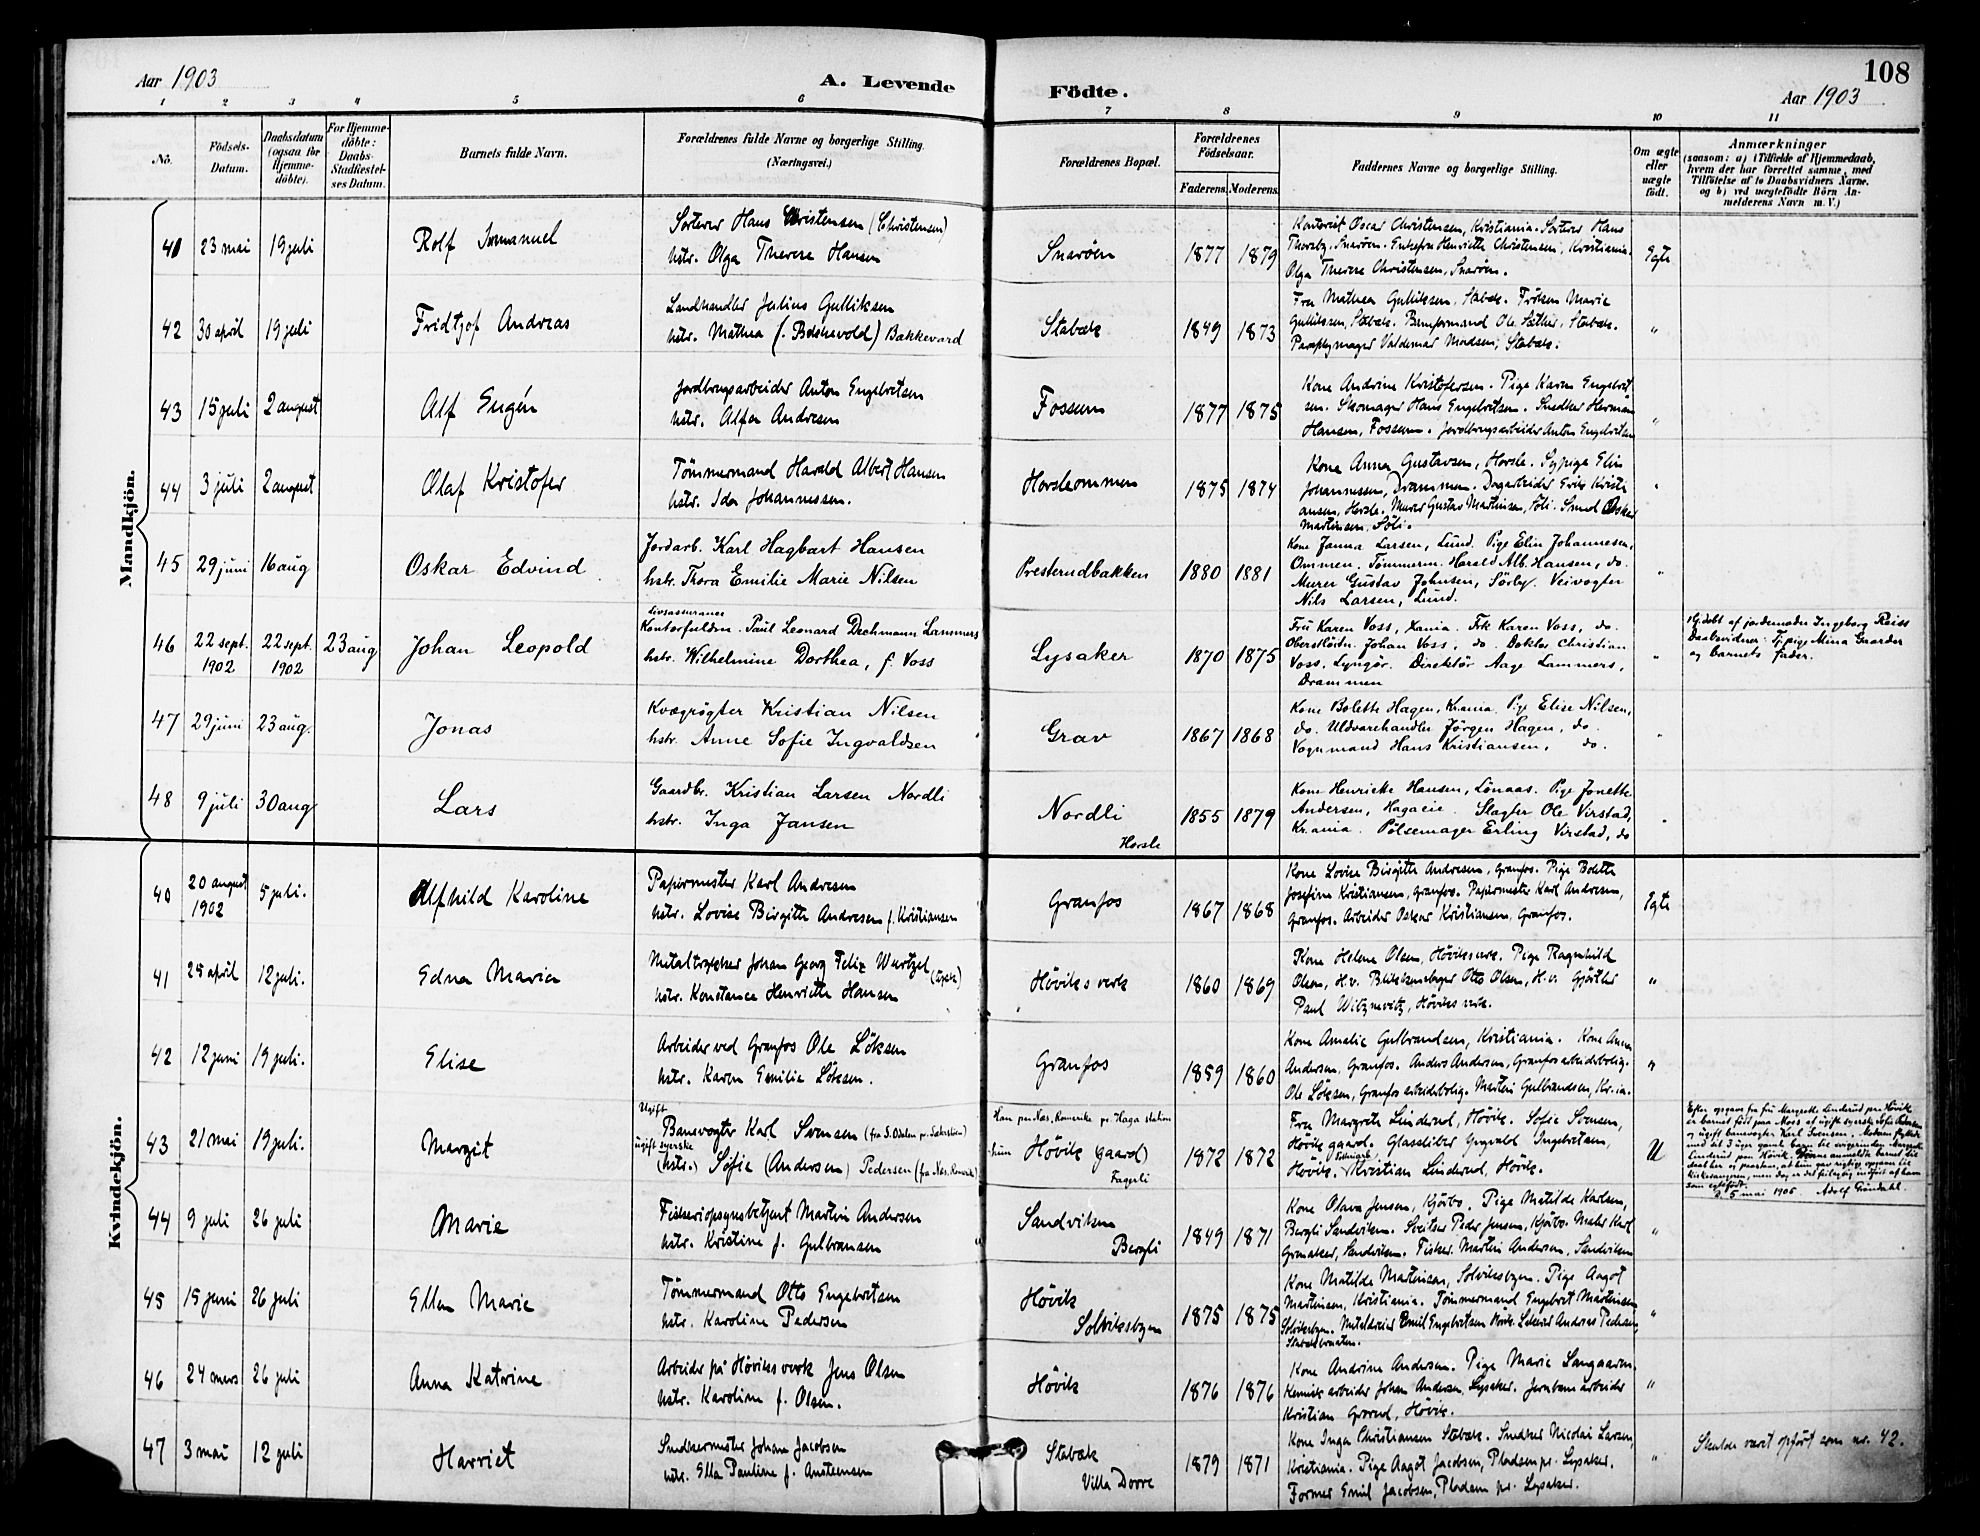 Aar 1903
A. Levende
Födte.
108
Aar 1903
1 2 3 4 5 6 7 8 9 10 11
No.
Födsels-Datum.
Daabsdatum (ogsaa for Hjemme-döbte).
For Hjemme-döbte: Daabs-Stadfæstel-ses Datum.
Barnets fulde Navn.
Forældrenes fulde Navne og borgerlige Stilling.
(Næringsvei.)
Forældrenes Bopæl.
Forældrenes Födselsaar.
Faderens. Moderens.
Faddernes Navne og borgerlige Stilling.
Om ægte eller uægte födt.
Anmærkninger
(saasom: a) i Tilfælde af Hjemmedaab,
hvem der har forrettet samme, med
Tilföielse af to Daabsvidners Navne.
og b) ved uægtefödte Börn An-
melderens Navn m. V.)
Mandkjön.
41 23 mai 19 juli Rolf Immanuel
Sorterer Hans Christensen (Christensen)
hstr. Olga Therese Hansen
Snarøen 1877 1879
Kontorist Oscar Christensen, Kristiania. Sorterer Hans
Thoresby, Snarøen. Enkefru Henriette Christensen, Kristiania.
Olga Therese Christensen, Snarøen.
Egte
42 30 april 19 juli Fridtjof Andreas
Landhandler Julius Gulliksen
hstr. Mathea (f. Bakkevold) Bakkevard
Stabæk 1849 1873
Fru Mathea Gulliksen, Stabæk. Frøken Marie
Gulliksen, Stabæk. Bemformand Ole Sæther, Stabæk.
Paraplymager Valdemar Madsen, Stabæk.
"
43 15 juli 2 august Alf Eugén
Jordbrugsarbeider Anton Engebretsen
hstr. Alfa Andresen
Fossum 1877 1875
Kone Andrine Kristofersen. Pige Karen Engebret
sen. Skomager Hans Engebretsen. Snedker Herman
Hansen, Fossum. Jordbrugsarbeider Anton Engebretsen
"
44 3 juli 2 august Olaf Kristofer
Tömmermand Harald Albert Hansen
hstr. Ida Johannessen.
Horsleommen 1875 1874
Kone Anna Gustavsen, Horsle. Sypige Elin
Johannessen, Drammen. Dagarbeider Erik Kristi
ansen, Horsle. Murer Gustav Martinsen, Föli. Smed Oskar
Martinsen, Söli.
"
45 29 juni 16 aug Oskar Edvind
Jordarb. Karl Hagbart Hansen
hstr. Thora Emilie Marie Nilsen
Presterudbakken 1880 1881
Kone Janna Larsen, Lund. Pige Elin Johannesen,
Ommen. Tömmerm. Harald Alb. Hansen, do.
Murer Gustav Johnsen, Sörby. Veivogter
Nils Larsen, Lund.
"
46 22 sept. 1902 22 sept. 1902 23 aug Johan Leopold
Livsassurance
Kontorfuldm. Paul Leonard Dechmann Lammers
hstr. Wilhelmine Dorthea, f. Voss
Lysaker 1870 1875
Fru Karen Voss, Xania. Frk Karen Voss, do.
Oberstlöitn. Johan Voss, do. Doktor Christian
Voss, Lyngör. Direktör Aage Lammers,
Drammen
"
Hj.døbt af jordemoder Ingeborg Reiss
Daabsvidner: Tj.pige Mina Gaarder
og barnets fader.
47 29 juni 23 aug. Jonas
Kvægrögter Kristian Nilsen
hstr. Anne Sofie Ingvaldsen
Grav 1867 1868
Kone Bolette Hagen, Kr.ania. Pige Elise Nilsen,
do. Uldvarehandler Jörgen Hagen, do.
Vognmand Hans Kristiansen, do.
"
48 9 juli 30 aug Lars
Gaardbr. Kristian Larsen Nordli
hstr. Inga Jansen
Nordli
Horsle 1855 1879
Kone Henriette Hansen, Lönaas. Pige Jonette
Andersen, Hagaeie. Slagter Ole Virstad,
Kr.ania. Pölsemager Erling Virstad, do
"
Kvindekjön.
40 20 august 1902 5 juli. Alfhild Karoline
Papirmester Karl Andresen
hstr. Lovise Birgitte Andresen f. Kristiansen
Granfos 1867 1868
Kone Lovise Birgitte Andresen, Granfos. Pige Bolette
Josefine Kristiansen, Granfos. Papirmester Karl Andresen,
Granfos. Arbeider Oskar Kristiansen, Granfos.
Egte
41 25 april 12 juli. Edna Maria
Metaltrykker Johan Georg Felix Wurtzel (tysk)
hstr. Konstance Henriette Hansen
Høviks verk 1860 1869
Kone Helene Olsen, Høviks verk. Pige Ragnhild
Olsen, H.v. Blikkenslager Otto Olsen, H.v. Gjørtler
Paul Witzmvitz, Høviks verk.
"
42 12 juni 19 juli. Elise
Arbeider ved Granfos Ole Löksen
hstr. Karen Emilie Löksen.
Granfos 1859 1860
Kone Amalie Gulbrandsen, Kristiania. Kone Anna
Andersen, Granfos. Anders Andersen, Granfos arbeiderbolig.
Ole Löksen, Granfos arbeiderbolig. Martin Gulbrandsen, Kr.ia.
"
43 21 mai 19 juli. Margit
Ugift
Banevogter Karl Svensen (fra S. Odalen pr. Sakerstøen)
ugift syerske
(hstr.) Sofie (Andersen) Pedersen (fra Næs, Romerike)
Han paa Næs, Romerike pr. Haga station
hun Høvik (gaard)
Fagerli 1872 1872
Fru Margrete Linderud, Høvik. Sofie Svensen,
Høvik gaard. Glassliber Yngvald Ingebretsen,
Høvik. Kristian Linderud, Høvik.
U
Efter opgave fra fru Margrethe Linderud paa Høvik
er barnet født paa Moss af ugift syerske Sofie Pedersen
og ugift banevogter Karl Svensen. Moderen flyttede
med til 3 uger gamle barn til svigerinden Margrethe
Linderud paa Høvik. Denne anmeldte barnet til
daab her og paastaar, at hun gav rigtig opgave til
kirkesangeren, men dog er det feilagtig indført af ham
som egtefødt.
d. 5 mai 1906 Adolf Grøndahl.
44 9 juli 26 juli Marie
Fiskeriopsynsbetjent Martin Andersen
hstr. Kristine f. Gulbransen
Sandviken
Bergli 1849 1871
Kone Olava Jensen, Kjörbo. Pige Matilde Karlsen,
Bergli Sandviken. Sveitser Peder Jensen, Kjörbo. Maler Karl
Grønaker, Sandviken. Fisker Martin Andersen, Sandviken
"
45 15 juni 26 juli Ellen Marie
Tömmermand Otto Engebretsen
hstr. Karoline Pedersen
Høvik
Solviksbyen 1875 1875
Kone Matilde Martinsen, Solviksbyen. Pige Aagot
Martinsen, Kristiania. Tömmermand Engebret Martinsen
Solviksbyen. Metaldreier Emil Engebretsen Høvik. Lakerer Andreas Pedersen,
"
46 24 mars 26 juli Anna Katrine
Arbeider på Høviks verk Jens Olsen
hstr. Karoline f. Olsen.
Høvik 1876 1876
Kone Andrine Andersen. Pige Marie Langaaren.
Kemisk arbeider Johan Andersen, Lysaker. Jernbanearbeider
Kristian Grorud, Høvik.
"
47 3 mai 12 juli Harriet
Snedkermester Johan Jacobsen
hstr. Ella Pauline f. Anstensen
Stabæk
Villa Dovre 1879 1871
Kone Inga Christiansen Stabæk. Snedker Nicolai Larsen,
Kristiania. Pige Aagot Jacobsen, Pladsen pr. Lysaker.
Former Emil Jacobsen, Pladsen pr. Lysaker.
"
Skulde vært opført som nr. 42.